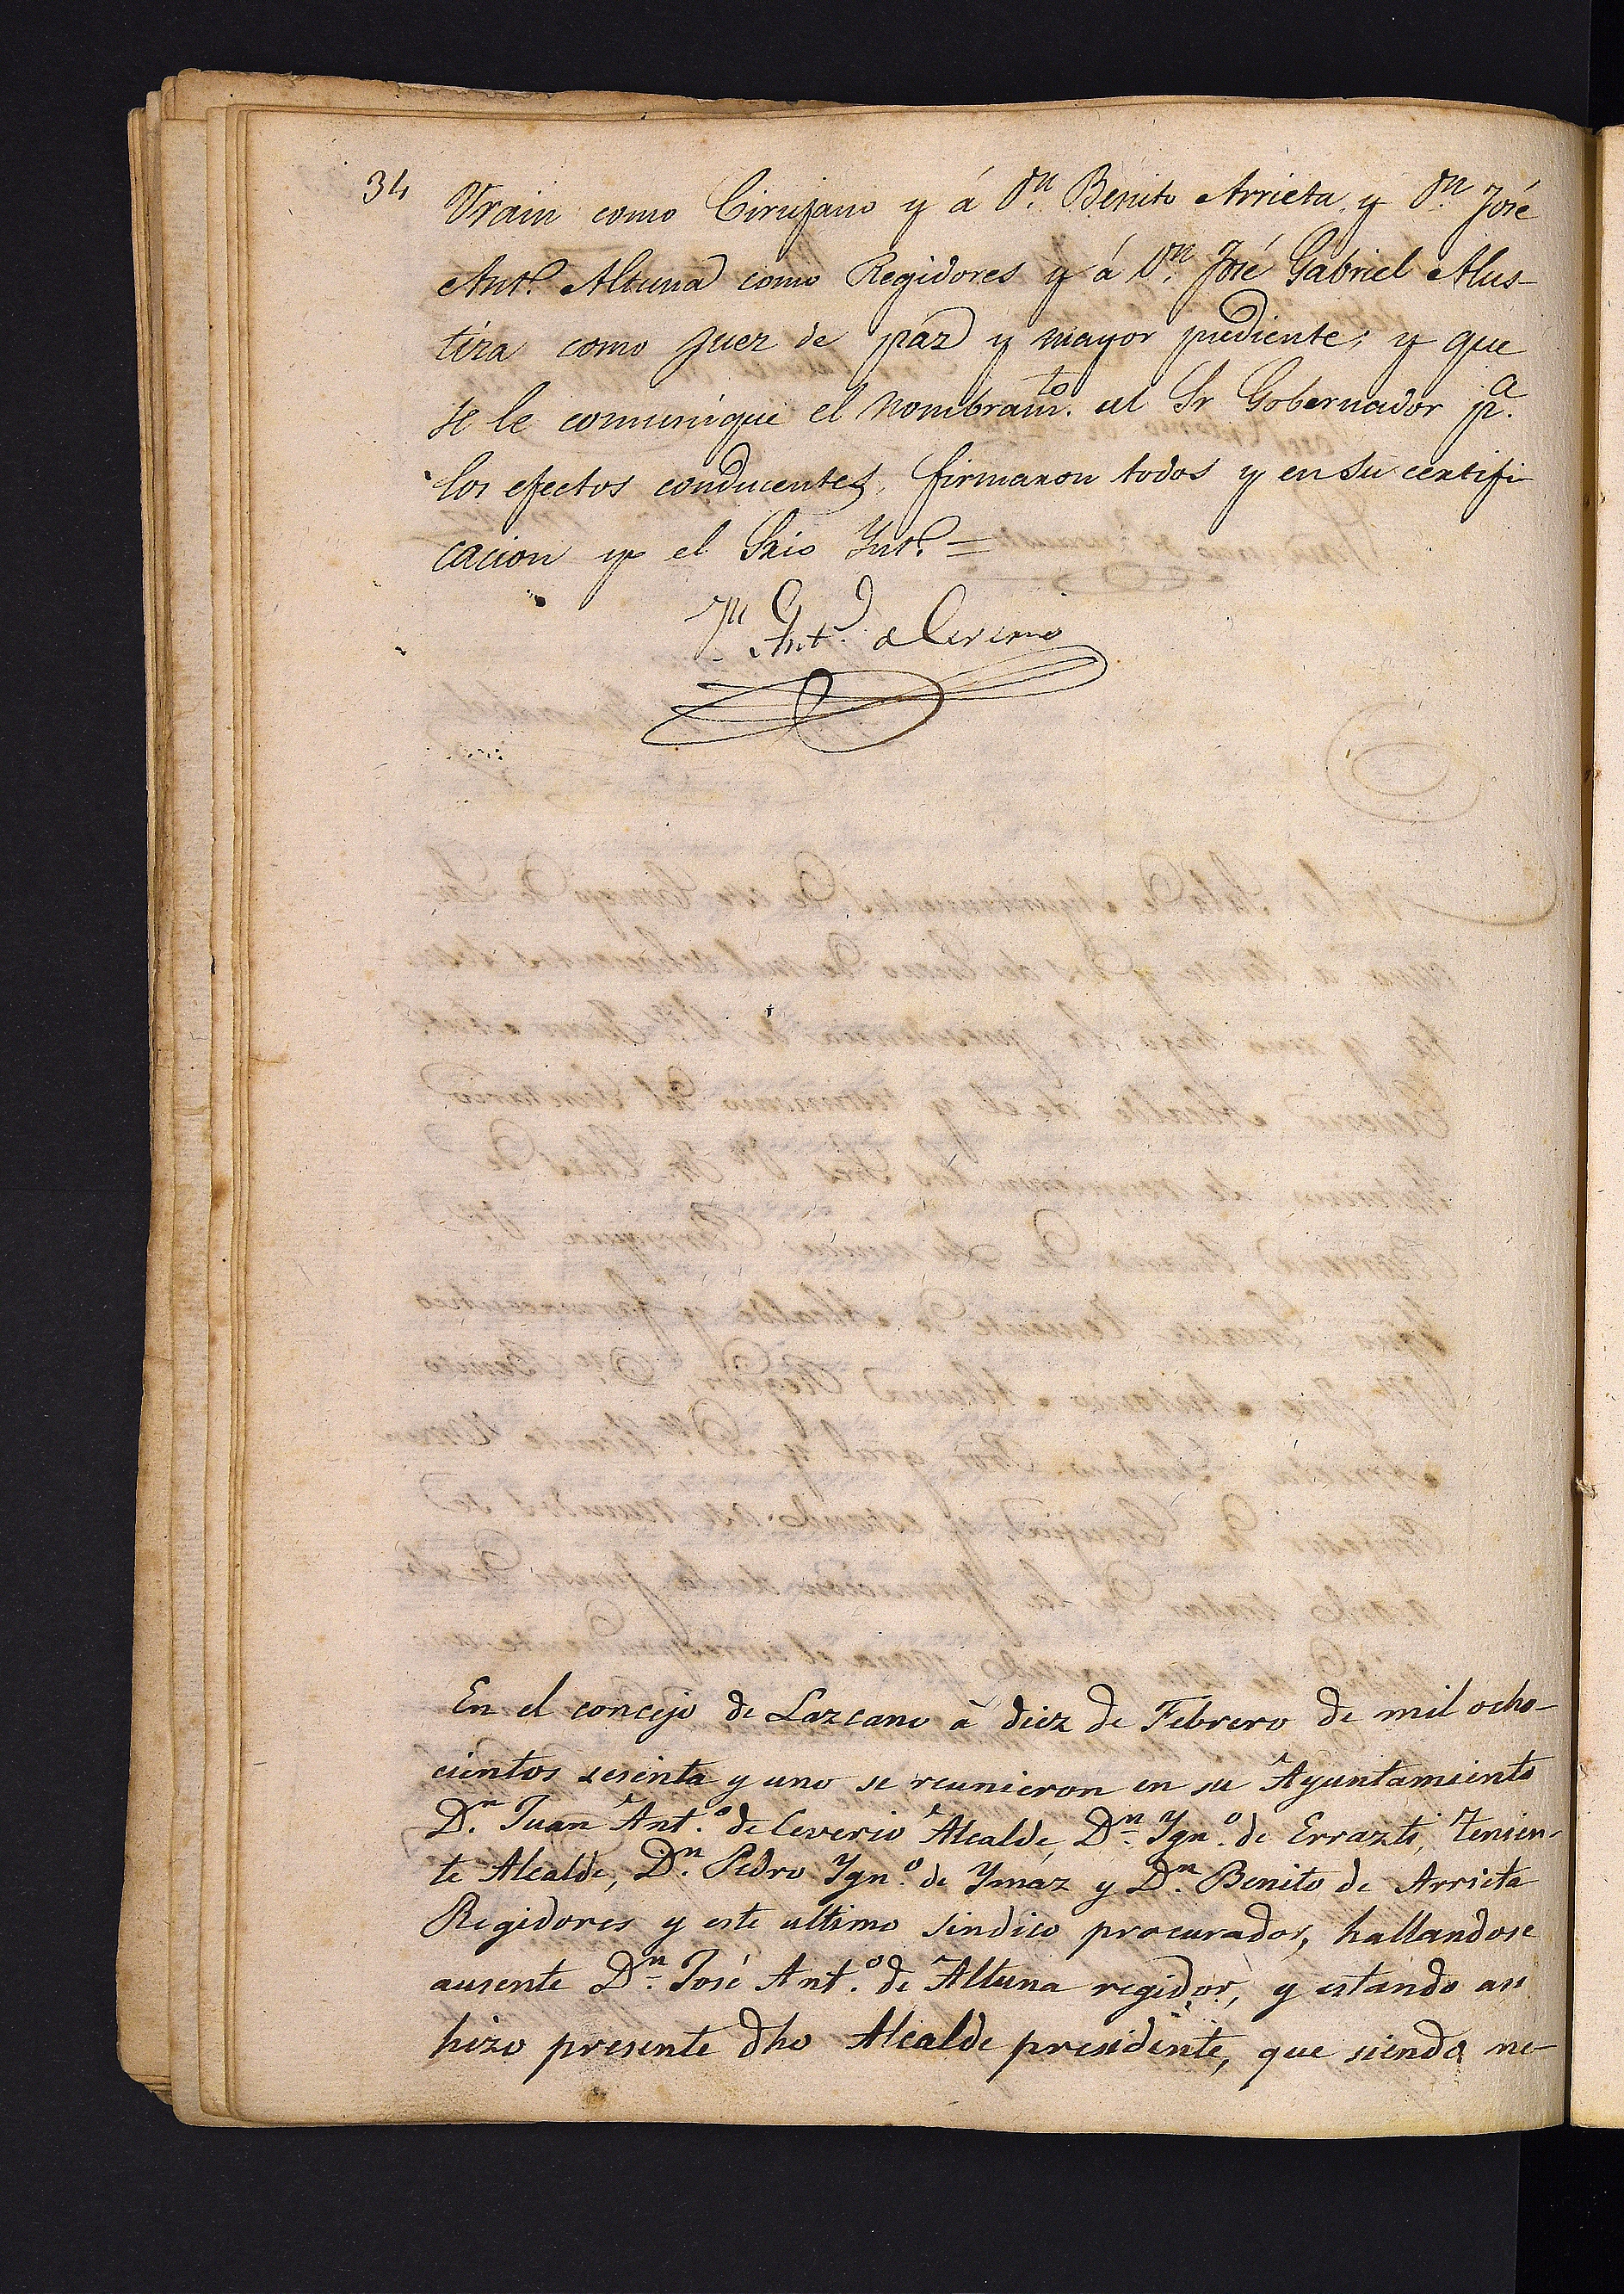 34
Vrain como Cirujano y á Dn. Benito Arrieta y Dn José
Anto. Altuna como Regidores y á Dn. José Gabriel Alus-
tiza como Juez de paz y mayor pudiente; y que
se le comunique el nombramto. al Sr Gobernador pa.
los efectos conducentes, firmaron todos y en su certifi-
cacion yo el Srio Into. =
Jn Anto. de Ceverio
En el concejo de Lazcano à diez de Febrero de mil ocho-
cientos sesenta y uno se reunieron en su Ayuntamiento
Dn. Juan Anto. de Ceverio Alcalde, Dn. Ygno. de Errazti, Tenien-
te Alcalde, Dn. Pedro Ygno. de Ymaz y Dn. Benito de Arrieta
Regidores y este ultimo sindico procurador, hallandose
ausente Dn. José Anto. de Altuna regidor, y estando asi
hizo presente dho Alcalde presidente, que siendo ne-